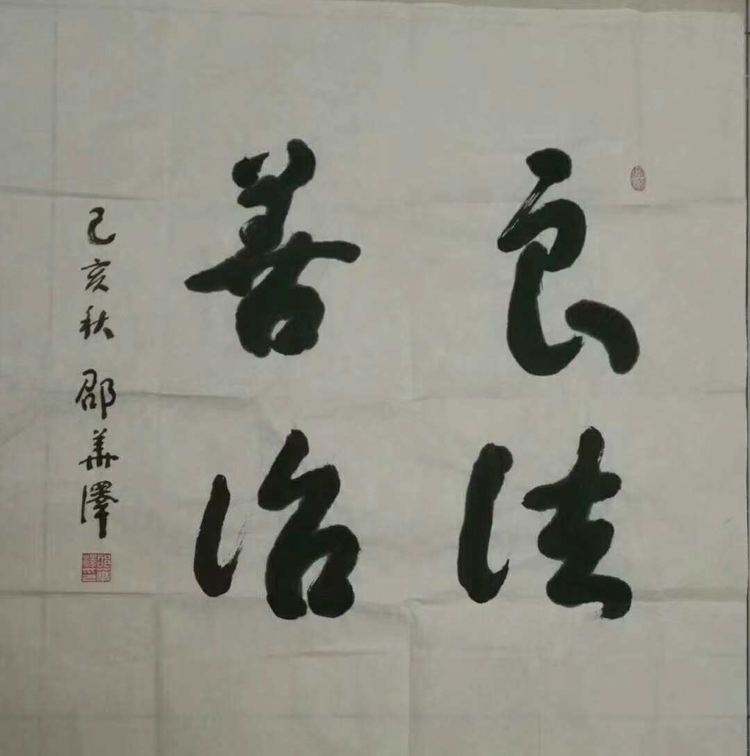 良法
善治
己亥秋 邵華澤